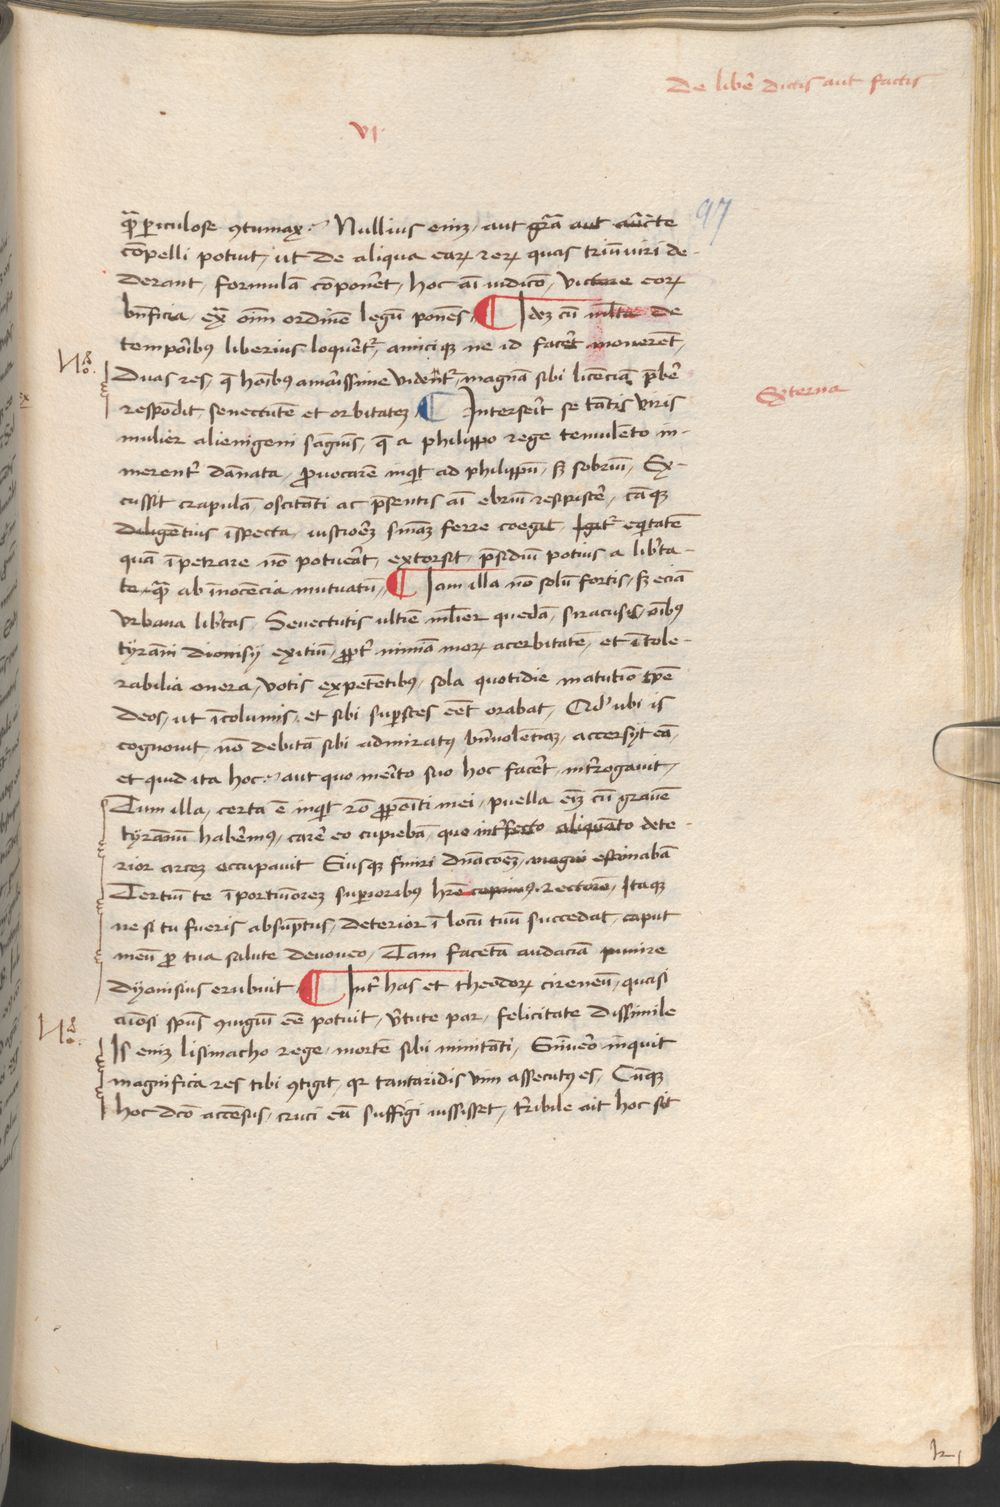 De libere dictis aut factis
VI
97
quā periculose ɔtumax? Nullius enim, aut gr̄a aut auc̄te
cōpelli potuit, ut de aliqua earꝝ rerꝝ quas triūuiri de-
derant, formulā cōponeret, hoc aī iudicō, victorie eorꝝ
bn̄ficia, ex̄ om̄ ordinē legū ponēs, Idē cū multa de
temporibus liberius loqueret᷑, amicique ne id faceret monerent,
No.
Duas res, q̄ hōibus amarissime vident᷑, magnā sibi licenciā p̄bere
Externa
respōdit, senectutē et orbitatē, Inserit se tātis viris
mulier alienigeni sāguīs, q̄ a philippo rege temulēto in-
merent᷑ dānata, ꝓuocarē inquit ad philippū, sꝫ sobriū, Ex-
cussit crapulā oscitāti ac p̄sentis aī ebriū respiscere, cāque
diligentius īspecta, iustiorē sniām ferre coegit, Igit᷑ equitatē
quā īpetrare nō potuerat, extorsit, p̄sidiū potius a liberta-
te quā ab inocencia mutuatū, Iam illa nō solū fortis, sꝫ eciā
vrbana libertas, Senectutis ultīe mulier quedā, siracusis, oībus
tyrāni dionisij exitiū, ꝓpter nimiā morꝝ acerbitatē, et ītole-
rabilia onera, votis expetētibus, sola quotidie matutīo tp̄e
deos, ut īcolumis, et sibi superstes eēt orabat, Qd' ubi is
cognouit, nō debitā sibi admiratus bn̄uolentiā, accersijt eā,
et quid ita hoc? aut quo merito suo hoc faceret, interrogauit,
Tum illa, certa ē inquit rō ꝓpōiti mei, puella eī cū grauē
tyrannū haberemus, carere eo cupiebā, quo interfecto aliquāto dete-
rior arcē occupauit Eiusque finiri dn̄acōem, magni estimabā
Tertiū te īportūiorē superioribus hr̄e cepimus rectorē, Itaque
ne si tu fueris absūptus, deterior ī locū tuū succedat, caput
meū ꝓ tua salute deuoueo, Tam facetā audaciā punire
dyonisius erubuit Inter has et theodorꝝ cireneū, quasi
aīosi sp̄us ɔiugiū eē potuit, v̄tute par, felicitate dissimile
No.
Is enim lisimacho rege, mortē sibi minitāti, Enīuero inquit
magnifica res tibi ɔtigit, qr cantaridis vim assecutus es, Cūque
hoc dcō accēsus, cruci eū suffigi iussisset, terribile ait hoc sit
k 1